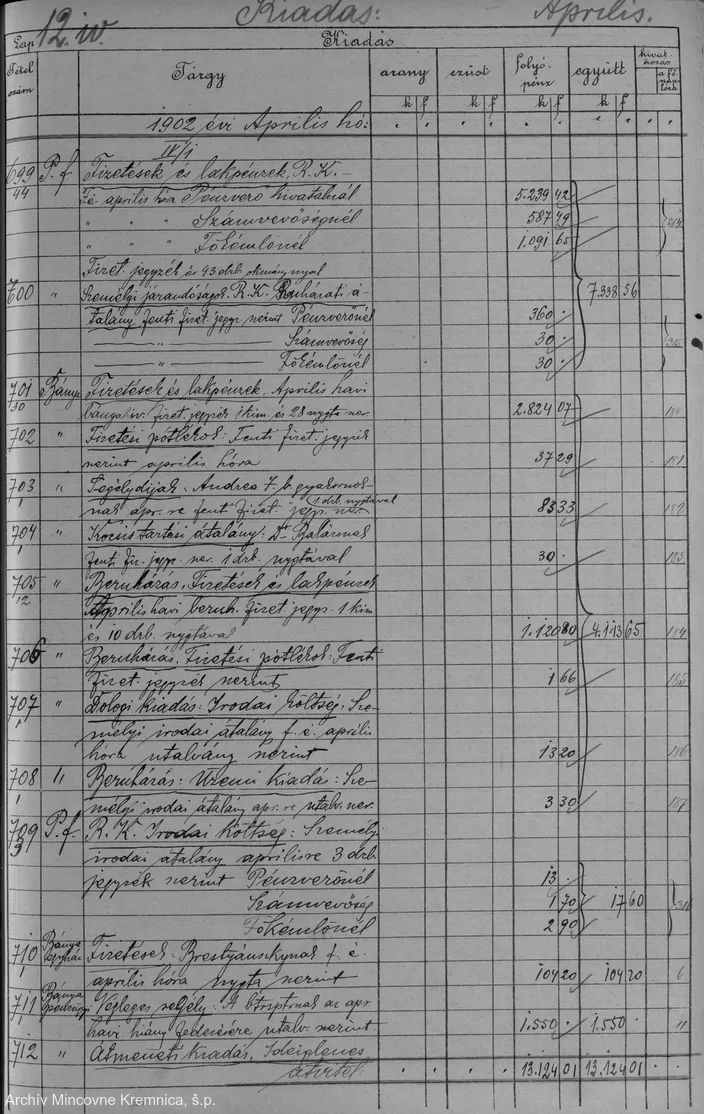 Kiadás: Április.
Lap 12. iv. Kiadás
Tétel szám Tárgy arany ezüst folyó pénz együtt hivatkozás a fő naplóra
k f k f k f k f
1902 évi Április hó:
IV/1
699 P.f. Fizetések és lakpénzek. R.K.
44 F.é. április hóra Pénzverő hivatalnál 5.239 42
" " " Számvevőségnél 587 49
" " " Főkémlőnél 1.091 65
Fizet. jegyzék és 43 drb. okmánynyal
700 " Személyi járandóságok. R.K. Ruházati á- 7.338 56
talány fenti fizet. jegyz. szerint Pénzverőnél 360 .
" Számvevőség 30 .
" Főkémlőnél 30 .
701 Bánya Fizetések és lakpénzek. Április havi
30 fizet. jegyzék 1 kim. és 28 nygta szer. 2.824 07
702 " Fizetési pótlékok: Fenti fizet. jegyzék
szerint április hóra 37 29 181
703 " Segélydijak: Andrea J. b. gyakornok-
1 nak apr. re fent fizet. jegyz. szer. 1 drb. nygtával 83 33 182
704 " Kocsis tartási átalány: Dr Balázsnak
1 fenti fiz. jegyz. szer. 1 drb. nygtával 30 . 183
705 " Beruházás. Fizetések és lakpénzek
12 Április havi beruh. fizet. jegyz. 1 kim.
és 10 drb. nygtával 1.120 80 4.113 65 184
706 " Beruházás. Fizetési pótlékok: Fenti
fizet. jegyzék szerint 1 66 185
707 " Dologi kiadás: Irodai költség: Sze-
1 mélyi irodai átalány f. é. április
hóra utalvány szerint 13 20 186
708 " Beruházás: Üzemi kiadás: Sze-
1 mélyi irodai átalány apr. re utalv. szer. 3 30 187
709 P.f. R.K. Irodai költség: Személyi
3 irodai átalány áprilisre 3 drb.
jegyzék szerint Pénzverőnél 13 .
Számvevőség 1 70 17 60
Főkémlőnél 2 90
710 Bánya Fizetések: Brestyánszkynak f. é.
1 április hóra nygta szerint 104 20 104 20 6
711 Bánya Végleges segély: A btrsptrnak az apr.
1 havi hiány fedezésére utalv. szerint 1.550 . 1.550 . 11
712 " Átmeneti kiadás. Ideiglenes
átvitel. 13.124 01 13.124 01
Archív Mincovne Kremnica, š.p.